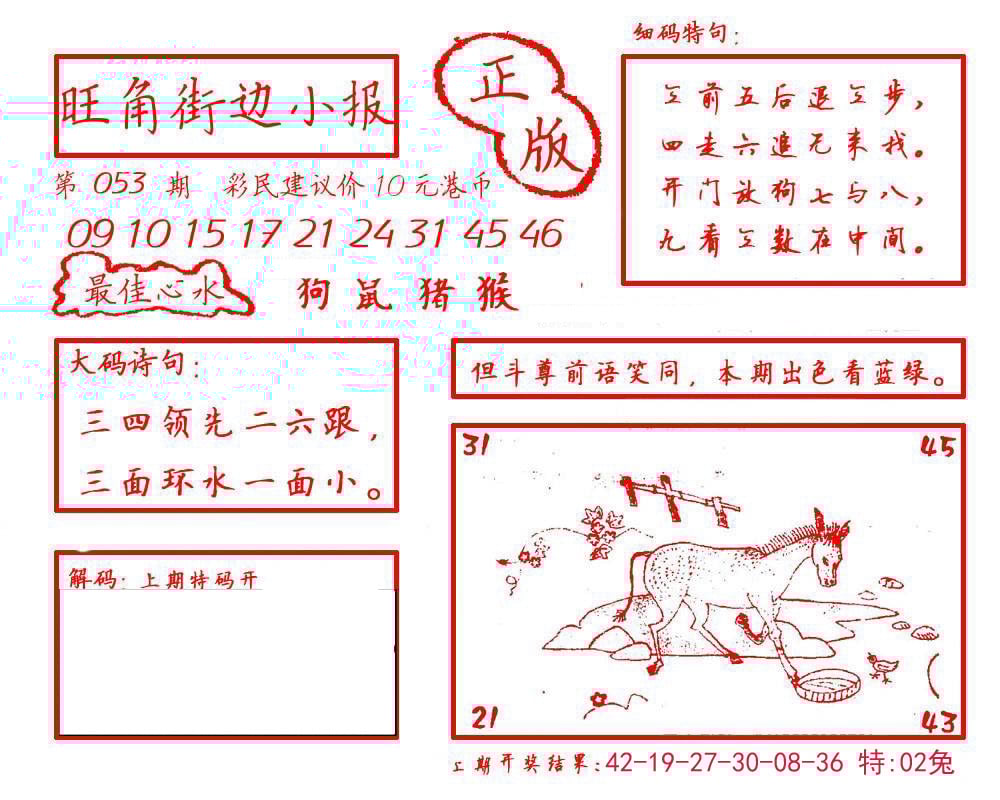 旺角街边小报
正版
第 053 期 彩民建议价 10 元港币
09 10 15 17 21 24 31 45 46
最佳心水 狗 鼠 猪 猴
细码特句:
三前五后退三步,
四走六追无来找。
开门放狗七与八,
九看三数在中间。
大码诗句:
三四领先二六跟,
三面环水一面小。
但斗尊前语笑同,本期出色看蓝绿。
解码: 上期特码开
31 45
21 43
上期开奖结果:42-19-27-30-08-36 特:02兔